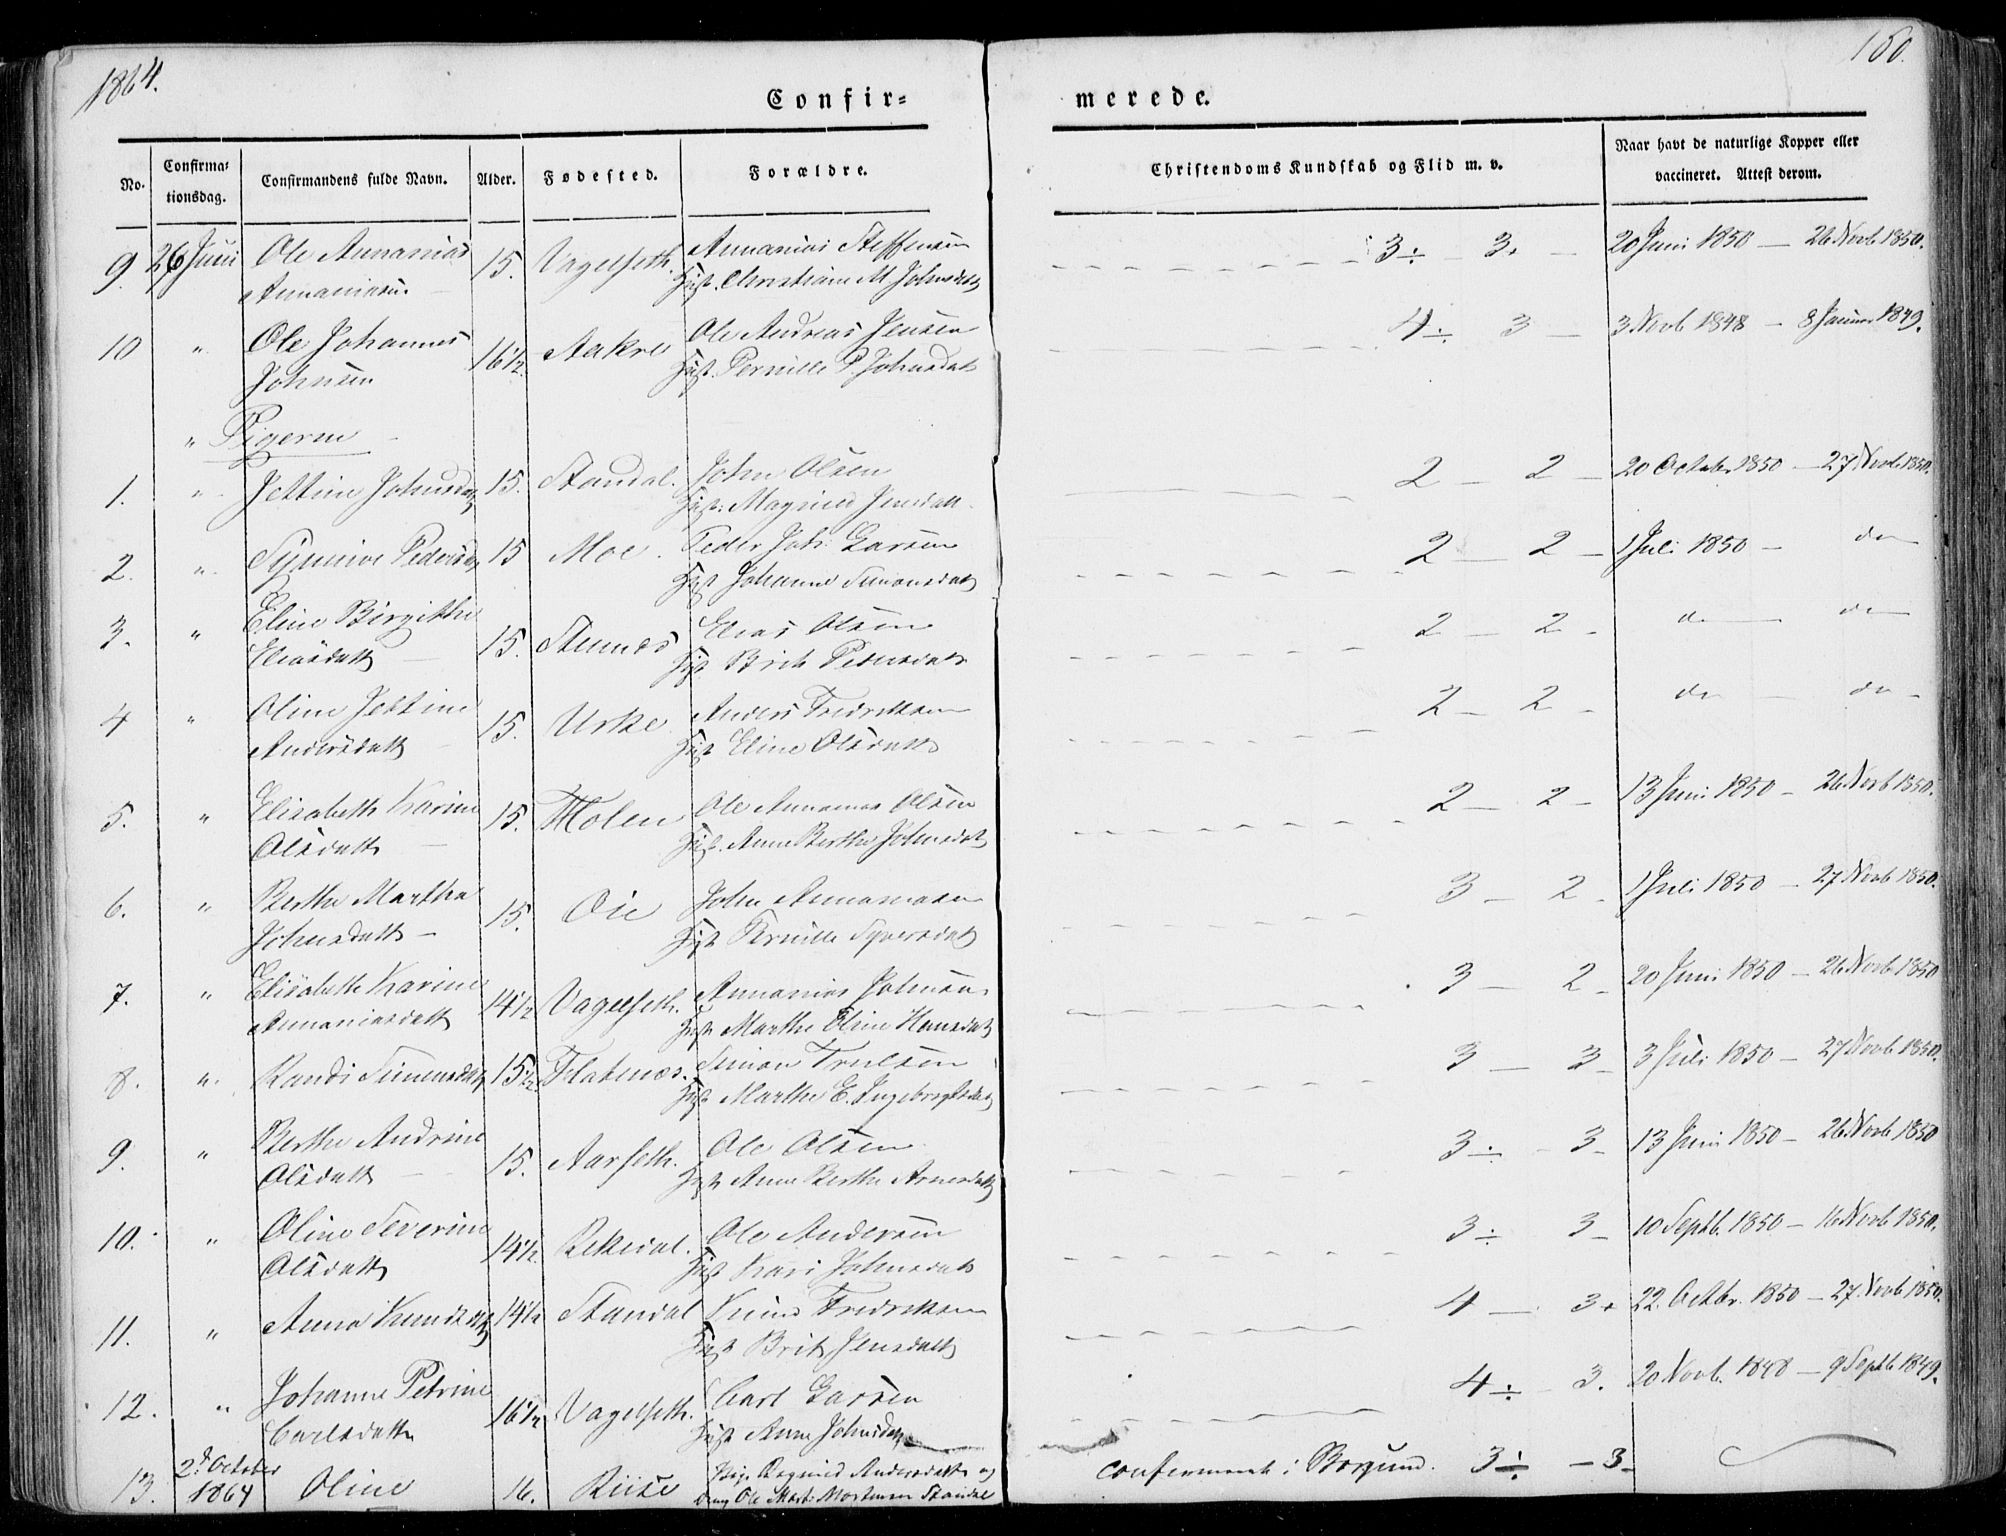 1864.
150.
Confir=
merede.
No.
Confirma=
tionsdag.
Confirmandens fulde Navn.
Alder.
Fødested.
Forældre.
Christendoms Kundskab og Flid m. v.
Naar havt de naturlige Kopper eller
vaccineret. Attest derom.
9. 26 Juni Ole Annanias 15. Vagelseth. Annanias Steffensen 3÷ 3+ 20 Juni 1850 — 26 Novb 1850.
Annaniasen Hust. Christiane M Johnsdatt
10 " Ole Johannes 16½. Aakre Ole Andreas Jensen 4÷ 3 — 3 Novb 1848 — 8 Januar 1849.
Johnsen Hust. Pernille P. Johnsdat
" Pigerne
1. " Jettine Johnsdatt 15. Standal. John Olsen 2 — 2 — 20 October 1850 — 27 Novb 1850.
Hust. Magnild Jensdatt
2. " Synnive Pedersdatt 15 Moe. Peder Joh: Larsen 2 — 2 — 1 Juli 1850 — do
Hust Johanne Simonsdatt
3. " Eline Birgithe 15. Stennes Elias Olsen 2 — 2 - do do
Eliasdatt Hust Brit Pedersdatt
4 " Oline Jettine 15. Urke Anders Fredriksen 2 — 2 - do do -
Andersdatt Hust Eline Olsdatt
5. " Elisabeth Karine 15. Molen Ole Annanias Olsen 2 — 2 - 13 Juni 1850 — 26 Novb 1850.
Olsdatt Hust. Anne Berthe Johnsdat
6. " Berthe Marthe 15. Oie John Annaniasen 3 — 2 - 1 Juli 1850 — 27 Novb 1850.
Johnsdatt Hust Pernille Syversdatt
7. " Elisabeth Karine 14½ Vagelseth. Annanias Johnsen 3 — 2 - 20 Juni 1850 — 26 Novb 1850
Annaniasdatt Hust. Marthe Eline Hansdat
8. " Randi Simensdatt 15½. Flatenes. Simon Trulsen 3 — 3 - 3 Juli 1850 — 27 Novb 1850.
Hust Marthe E. Ingebregtsdat
9. " Berthe Andrine 15. Aarseth. Ole Olsen 3÷ - 3 - 13 Juni 1850 — 26 Novb 1850
Olsdatt Hust Anne Berthe Arnesdatt
10. " Oline Severine 14½ Rekedal. Ole Andersen 3÷ 3 - 10 Septb. 1850 — 16 Novb 1850.
Olsdatt Hust Kari Johnsdatt
11. " Anna Knudsdatt 14½ Standal Knud Fredriksen 4 — 3+ 22. Octbr. 1850 — 27 Novb 1850.
Hust Brit Jensdatt
12. " Johanne Petrine 16½ Vagelseth. Carl Larsen 4÷ 3. 20 Novb. 1848 — 9 Septb 1849.
Carlsdatt Hust Anne Johnsdatt
13. 2d October Oline 16. Riise Pig. Ragnild Andersdatt og confirmeret i Borgund. 3÷ — 3 -
1864 Ung Ole Mart: Mortensen Standal